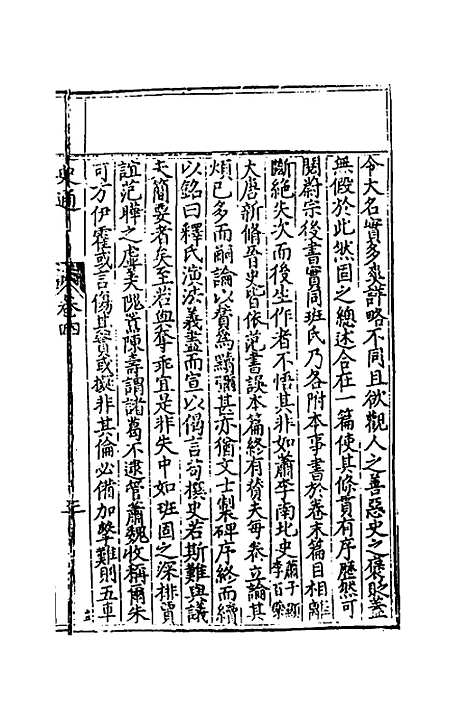 今大名實多爽詳略不同且欲觀人之善惡史之襃貶蓋
無假於此然固之總述合在一篇使其條貫有序歷然可
閱蔚宗後書實同班氏乃各附本事書於卷末篇目相離
斷絕失次而後生作者不悟其非如蕭李南北史蕭子顯李百藥
大唐新脩晉史皆依范書誤本篇終有贊夫每卷立論其
煩已多而嗣論以贊爲黷彌甚亦猶文士製碑序終而續
以銘曰釋氏演法義盡而宣以偈言苟撰史若斯難與議
夫簡要者矣至若與奪乖宜是非失中如班固之深排賈
誼范曄之虛美隗囂陳壽謂諸葛不逮管蕭魏收稱爾朱
可方伊霍或言傷其實或擬非其倫必備加擊難則五車
史通
卷四